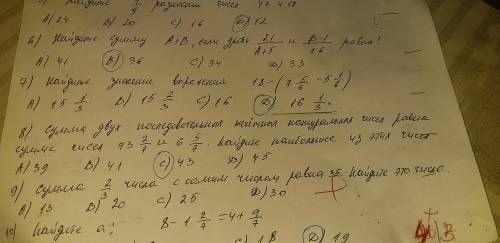 Найдите 2/9 разности чисел
A) 24 B) 20 C) 16 D) 12
6) Найдите сумму A+B, если дроби 21/A+5 и B-1/16 равны?
A) 41 B) 36 C) 34 D) 33
7) Найдите значение выражения 18-(7 5/6-5 1/6)
A) 15 1/3. B) 15 2/3 C) 16 D) 16 1/3.
8) Сумма двух последовательных нечётных натуральных чисел равна
сумме чисел 73 2/7 и 6 5/7. Найдите наибольшее из этих чисел
A) 39 B) 41 C) 43 D) 45
9) Сумма 2/3 числа с самим числом равна 35. Найдите это число.
A) 13 B) 20 C) 25 D) 30
10) Найдите a; 8-1 2/7=4+9/7
C) 18 D) 19
B